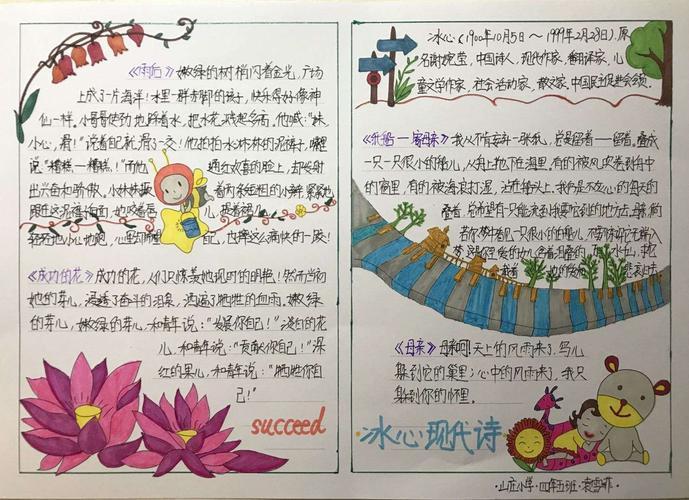 《雨后》嫩绿的树梢闪着金光，广场
上成了一片海洋！水里一群赤脚的孩子，快乐得好像神
仙一样。小哥哥使劲地踩着水，把水花溅起多高。他喊："妹，
小心，滑！"说着自己就滑了一交！他拍拍水淋淋的泥裤子，嘴里
说："糟糕——糟糕！"而他 通红欢喜的脸上，却发射
出兴奋和骄傲。小妹妹撅 着两条短粗的小辫，紧紧地
跟在这泥裤子后面，她咬着唇儿，提着裙儿，
轻轻地小心地跑，心里却希望自己，也摔这么痛快的一跤！
《成功的花》成功的花，人们只惊羡她现时的明艳！然而当初
她的芽儿，浸透了奋斗的泪泉，洒遍了牺牲的血雨。嫩绿
的芽儿，嫩绿的芽儿，和青年说："发展你自己！"淡白的花
儿，和青年说："贡献你自己！"深
红的果儿，和青年说："牺牲你自
己！"
succeed
冰心(1900年10月5日～1999年2月28日)，原
名谢婉莹，中国诗人，现代作家、翻译家、儿
童文学作家、社会活动家、散文家、中国民主促进会
《纸船——寄母亲》我从不肯妄弃一张纸，总是留着——留着，叠成
一只一只很小的船儿，从舟上抛下在海里。有的被风吹卷到舟中
的窗里，有的被海浪打湿，沾在船头上。我仍是不灰心的每天的
叠着，总希望有一只能流到我要它到的地方去。母亲，倘
若你梦中看见一只很小的白船儿，不要惊讶它无端入
梦。这是你至爱的女儿含着泪叠的，万水千山，求
《母亲》母亲呵！天上的风雨来了，鸟儿
躲到它的巢里；心中的风雨来了，我只
躲到你的怀里。
冰心现代诗
山庄小学·四年五班·